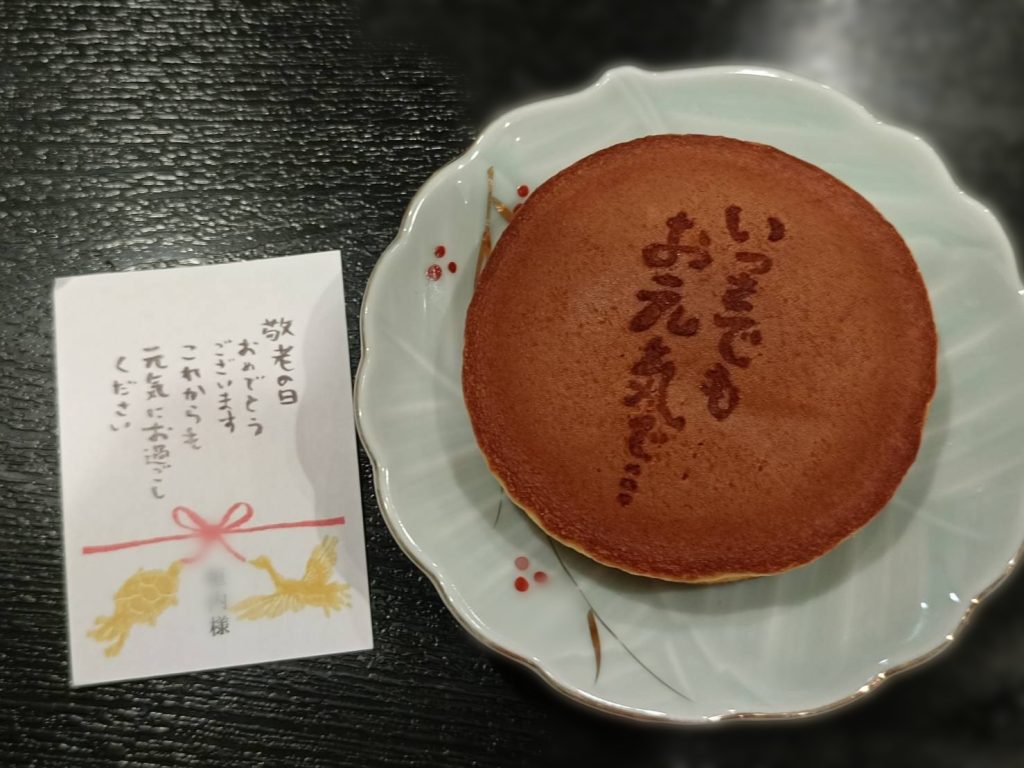 敬老の日
おめでとう
ございます
これからも
元気にお過ごし
ください
様
いつまでも
お元気で…